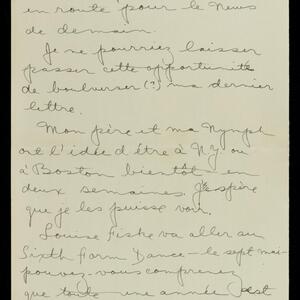 en route pour le News
de demain.
Je ne pourriez laisser
passer cette opportunité
de boulverser (?) ma dernier
lettre.
Mon père et ma Nymph
ont l'idée d'être à N.Y. ou
à Boston bientôt – en
deux semaines. J'espère
que je les puisse voir.
Louise Fiske va aller au
Sixth Form Dance – le sept mai –
pouvez-vous comprenez
que toute une année est